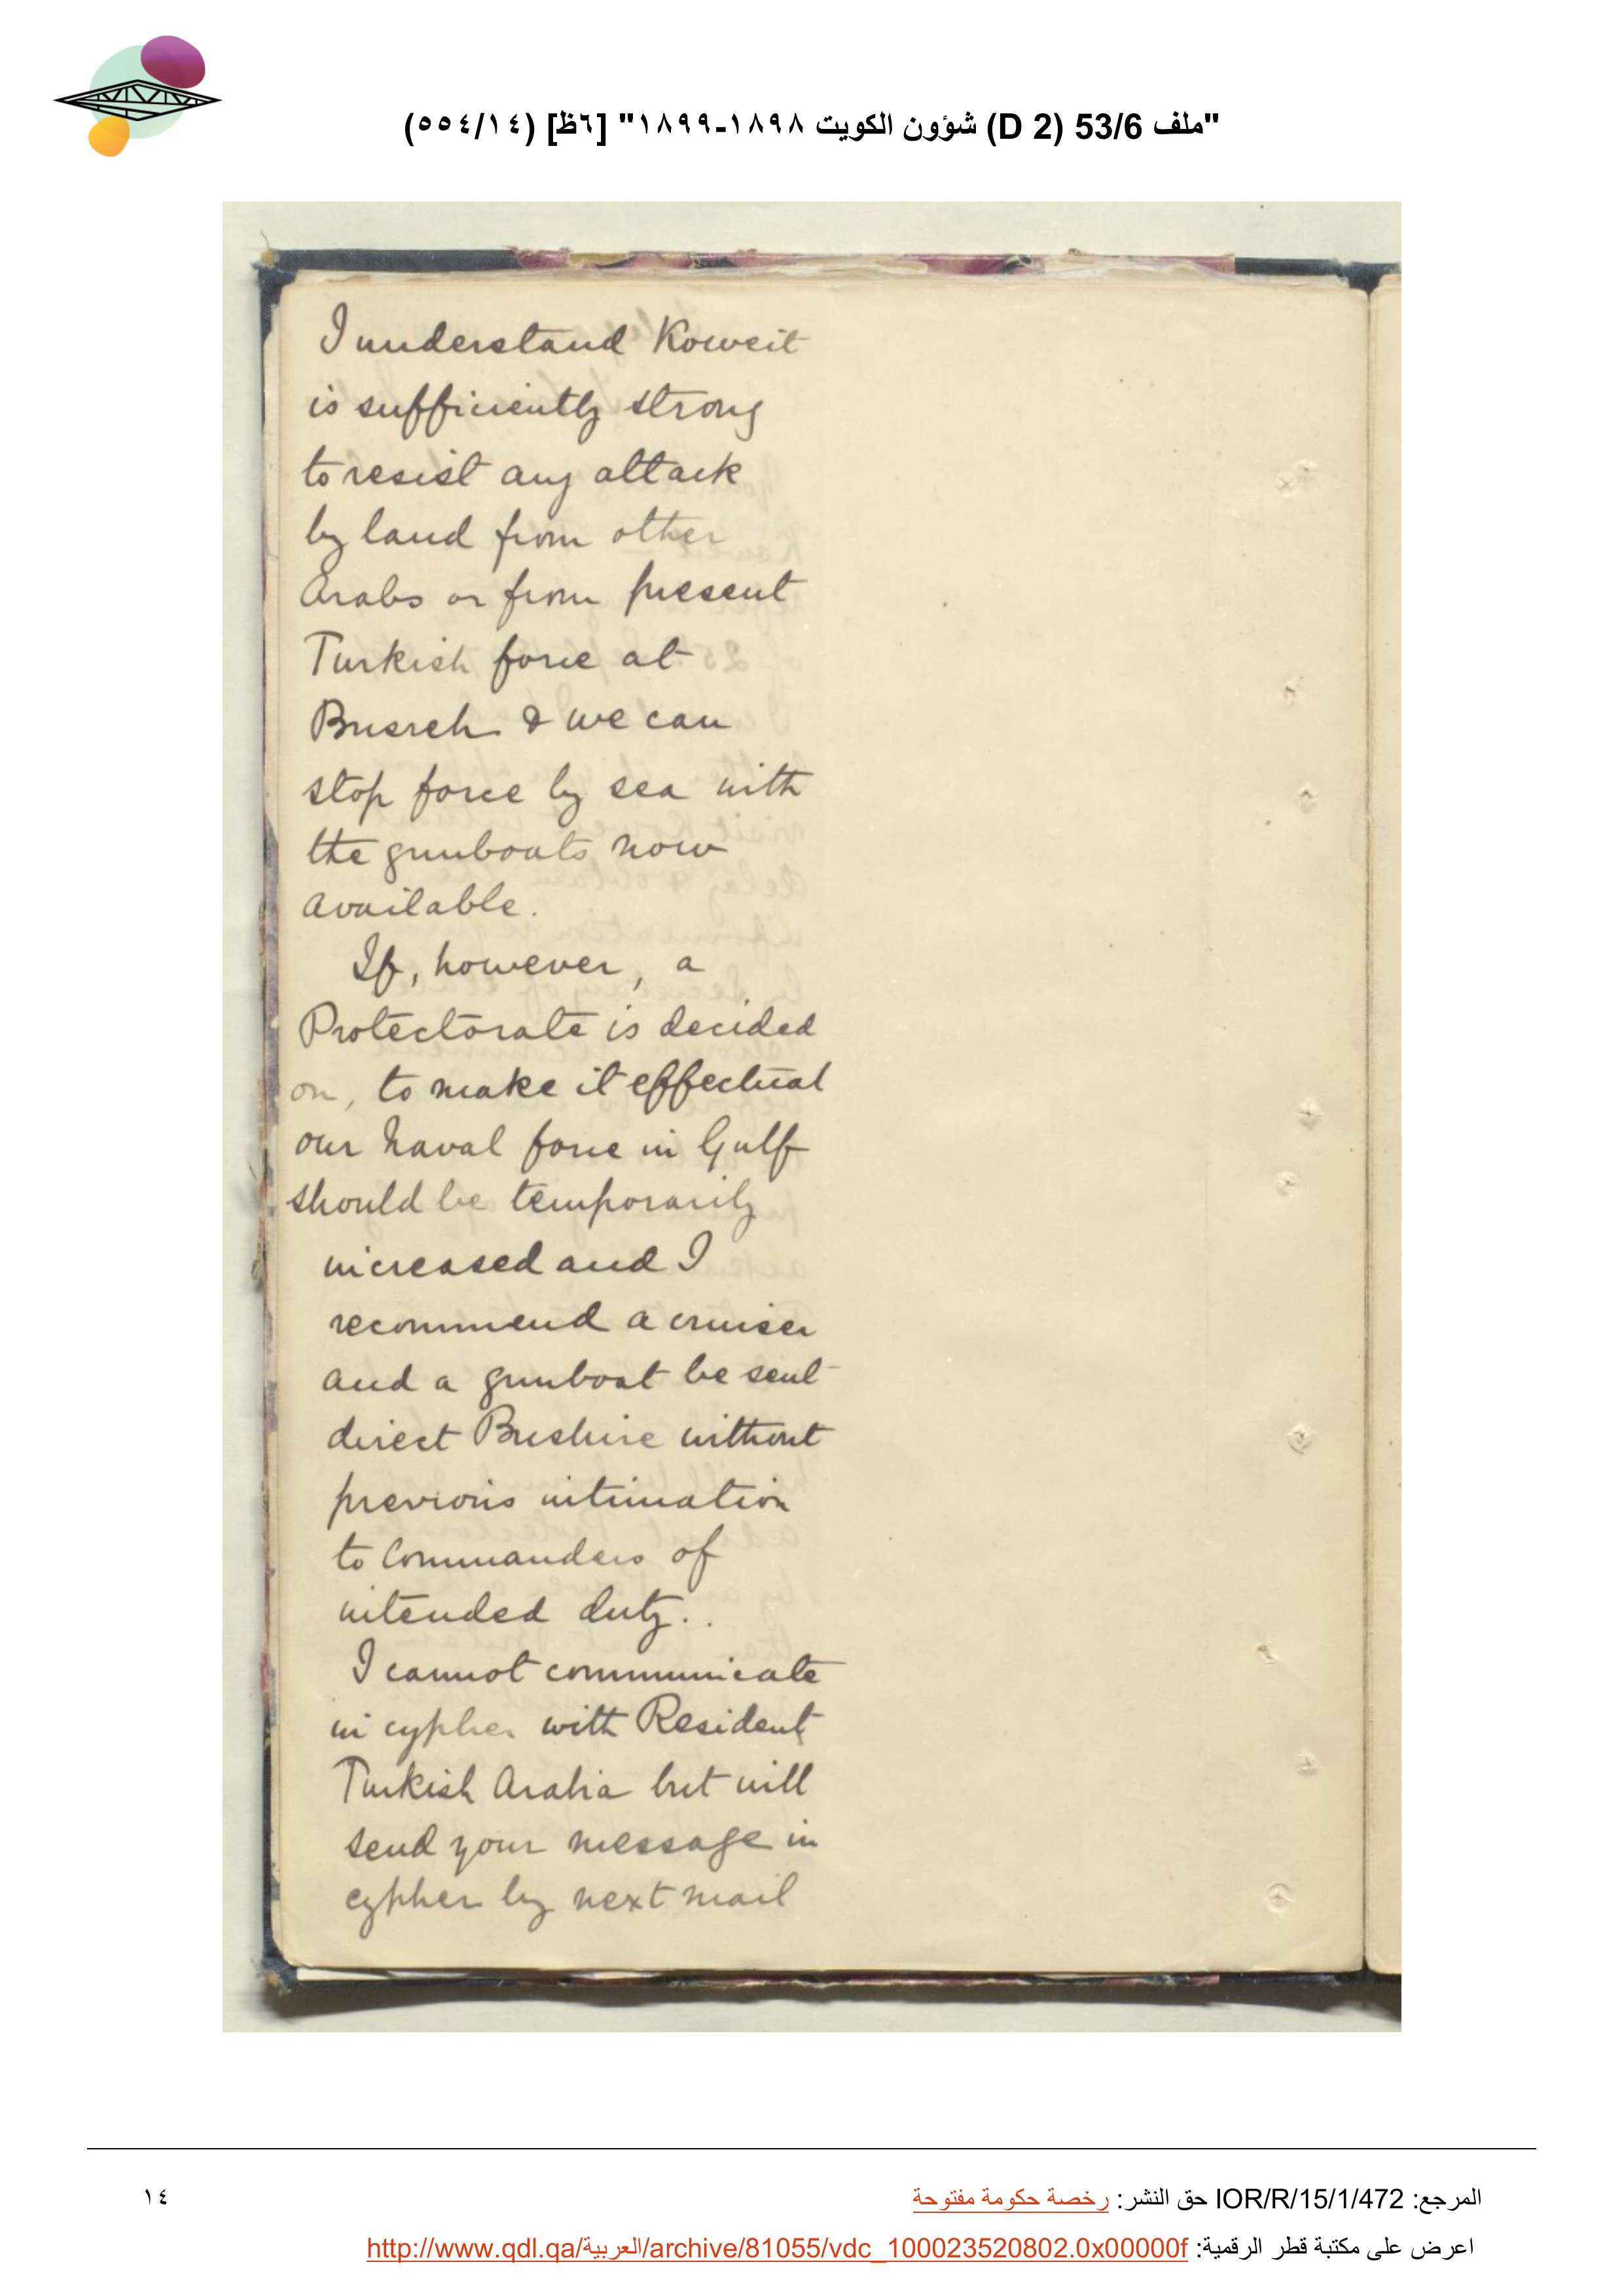 "ملف 53/6 (D 2) شؤون الكويت ١٨٩٨-١٨٩٩" [٦ظ] (٥٥٤/١٤)
I understand Koweit
is sufficiently strong
to resist any attack
by land from other
Arabs or from present
Turkish force at
Busreh & we can
stop force by sea with
the gunboats now
available.
If, however, a
Protectorate is decided
on, to make it effectual
our Naval force in Gulf
should be temporarily
increased and I
recommend a cruiser
and a gunboat be sent
direct Bushire without
previous intimation
to Commanders of
intended duty.
I cannot communicate
in cypher with Resident
Turkish Arabia but will
send your message in
cypher by next mail
المرجع: IOR/R/15/1/472 حق النشر: رخصة حكومة مفتوحة
١٤
اعرض على مكتبة قطر الرقمية: http://www.qdl.qa/العربية/archive/81055/vdc_100023520802.0x00000f